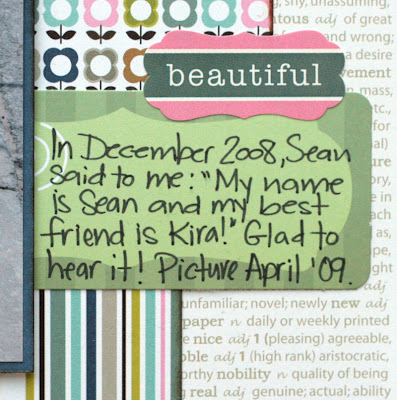 , shy, unassuming,
tous adj of great
and wrong;
a desire
vement
mass,
etc.,
beautiful
In December 2008, Sean
said to me: "My name
is Sean and my best
friend is Kira!" Glad to
hear it! Picture April '09.
unfamiliar; novel; newly new adj
paper n daily or weekly printed
nice adj 1 (pleasing) agreeable,
ble adj 1 (high rank) aristocratic,
orthy nobility n quality of being
g real adj genuine; actual; ability